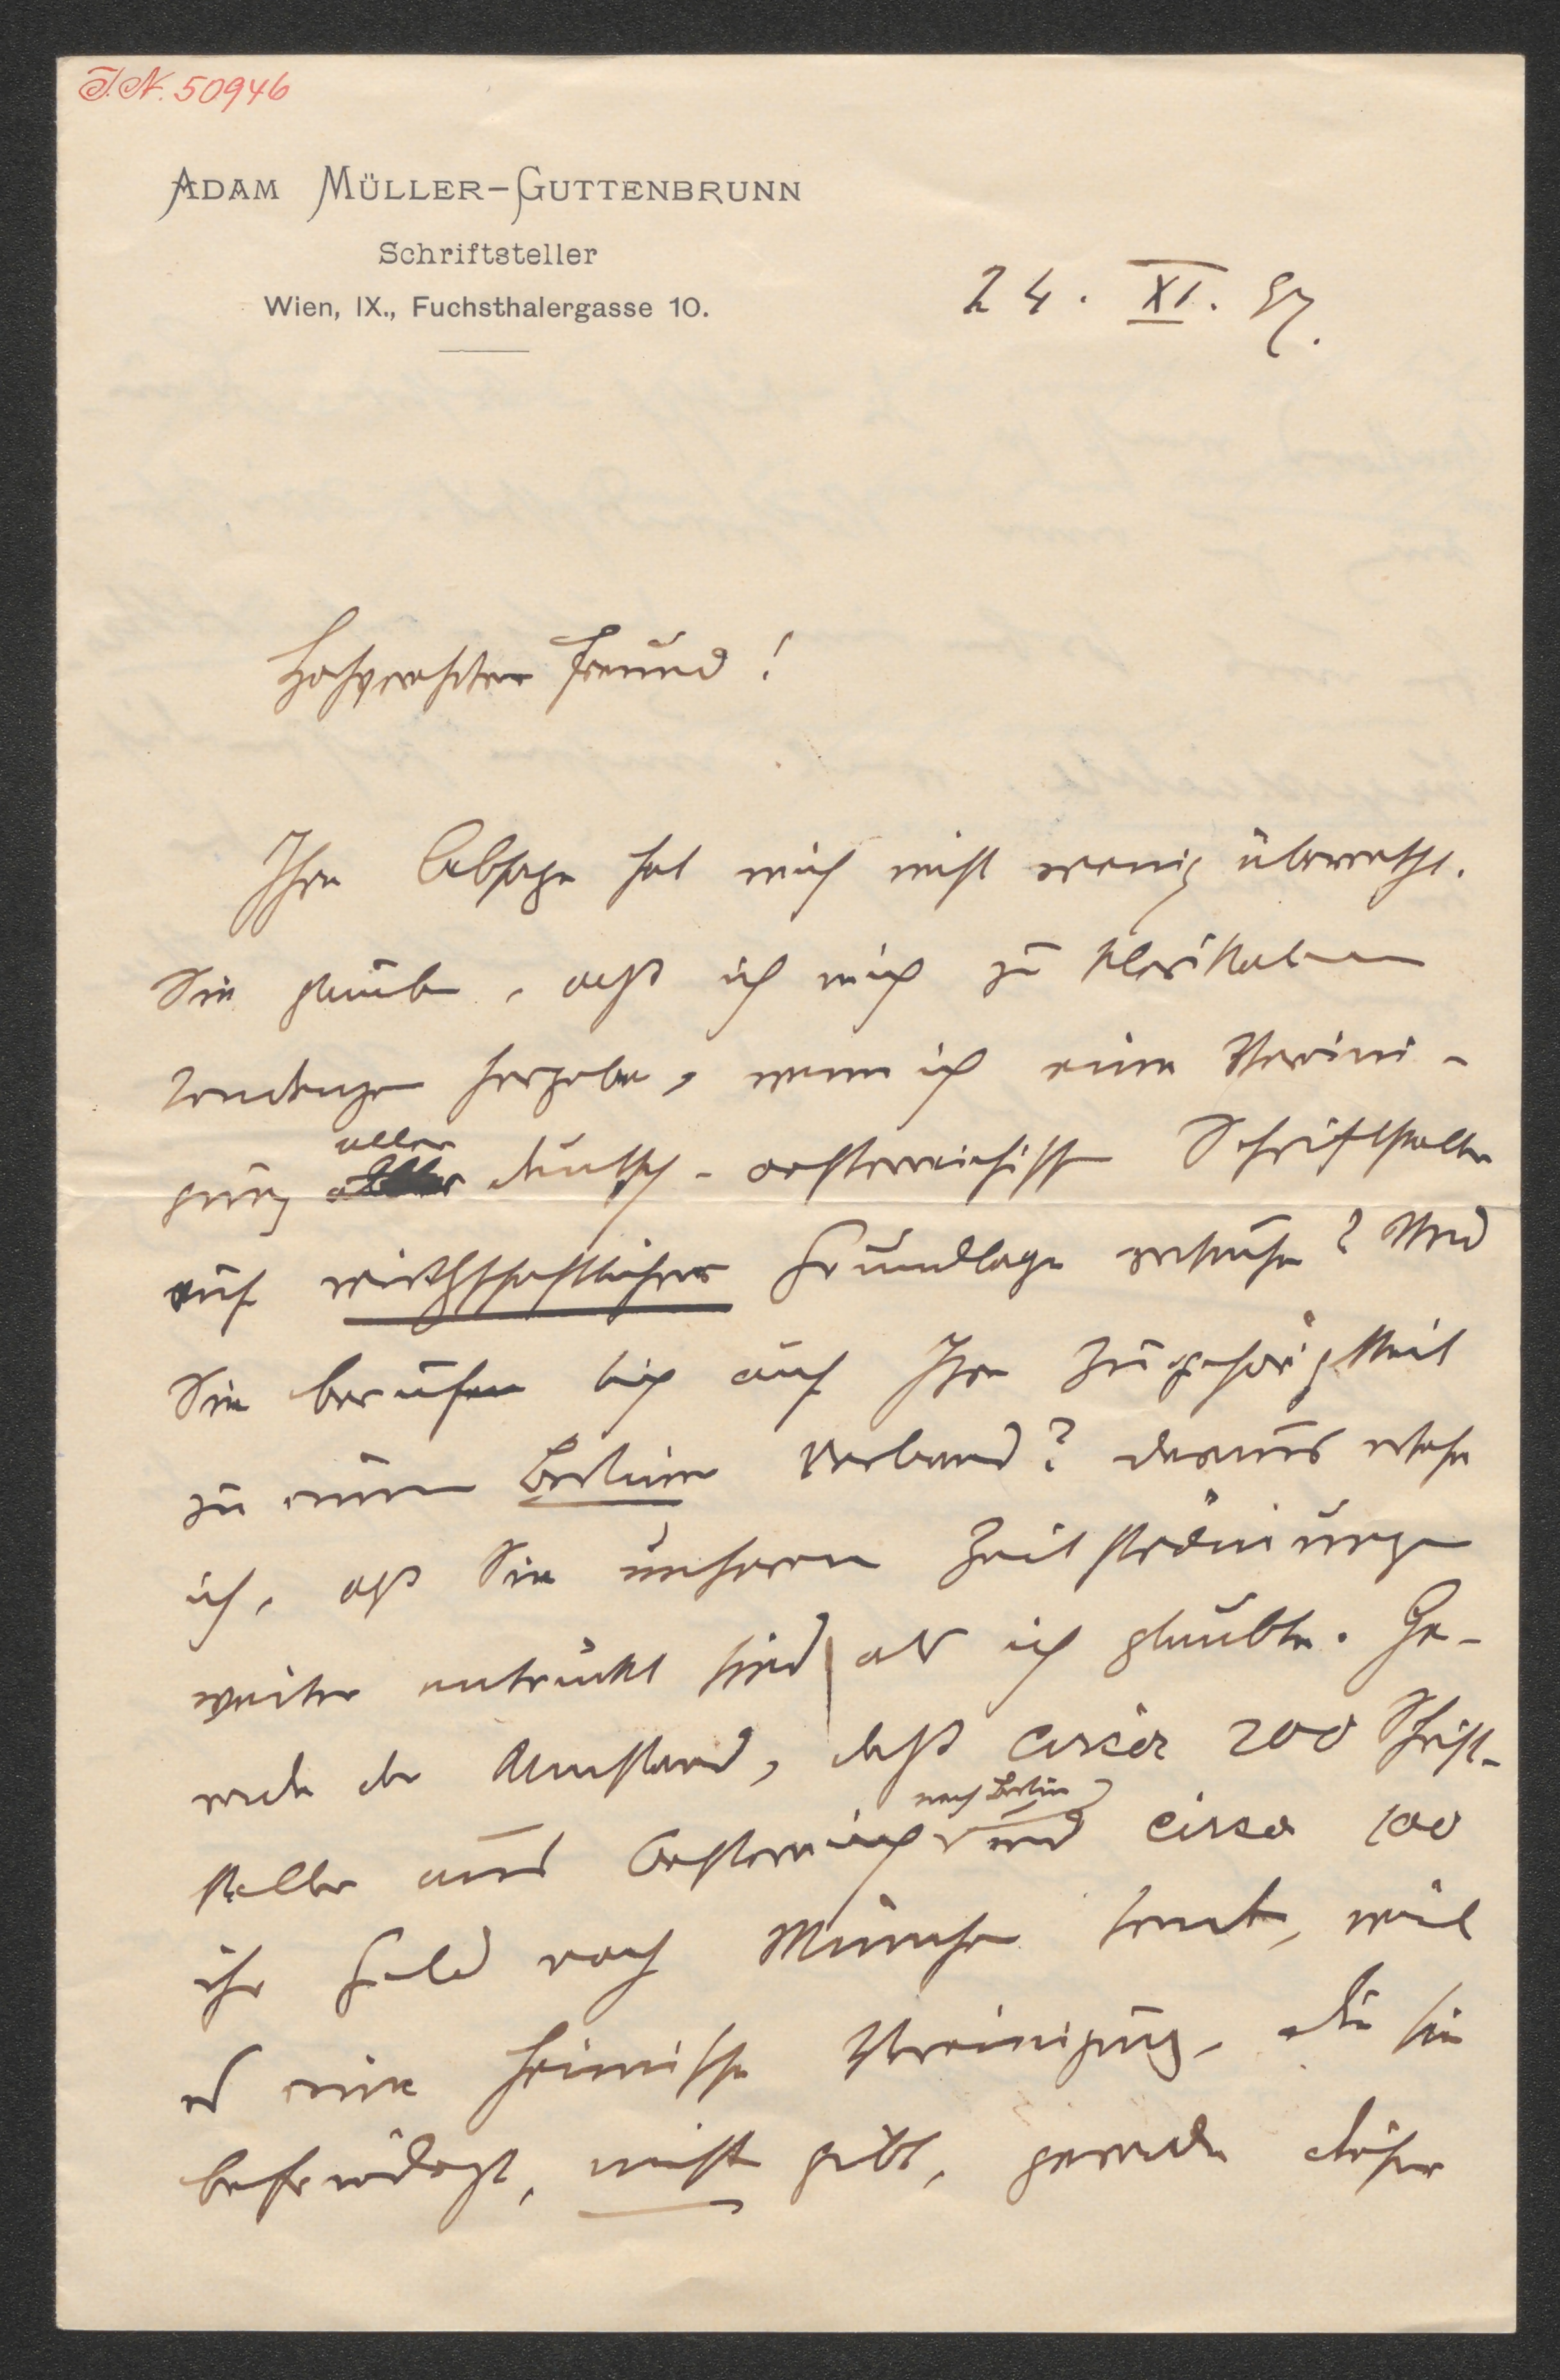 I.N. 50946
ADAM MÜLLER-GUTTENBRUNN
Schriftsteller
Wien, IX., Fuchsthalergasse 10.
24. XI. 97.
Hochverehrter Freund!
Ihre Absage hat mich nicht wenig überrascht.
Sie glauben, daß ich mich zu klerikalen
Tendenzen hergebe, wenn ich eine Vereini-
gung aller deutsch-oesterreichischen Schriftsteller
auf wirthschaftlicher Grundlage versuche? Und
Sie berufen sich auf Ihre Zugehörigkeit
zu einem Berliner Verband? Daraus ersehe
ich, daß Sie unseren Zeitströmungen
weiter entrückt sind, als ich glaubte. Ge-
rade der Umstand, daß circa 200 Schrift-
steller aus Oesterreich nach Berlin und circa 100
ihr Geld nach München senden, weil
es eine heimische Vereinigung, die sie
befriedigt, nicht gibt, gerade dieser